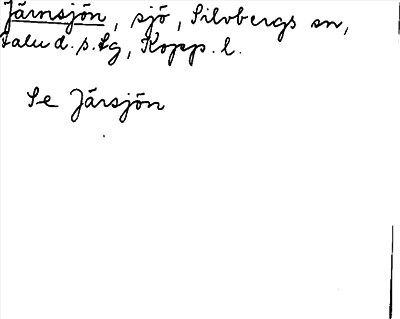 Järnsjön, sjö, Silvbergs sn,
Falu d.s.lg, Kopp. l.
Se Järsjön